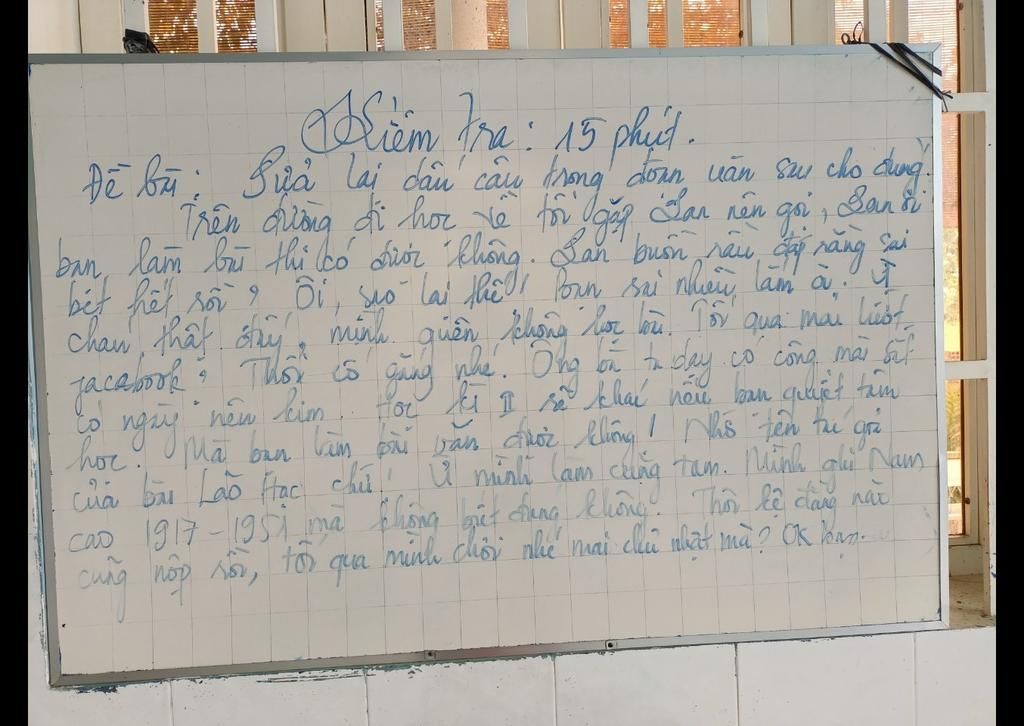 Kiểm tra: 15 phút.
Đề bài: Sửa lại dấu câu trong đoạn văn sau cho đúng.
Trên đường đi học về tôi gặp Lan nên gọi, Lan ơi
bạn làm bài thi có được không. Lan buồn rầu đáp rằng sai
bét hết rồi? Ôi, sao lại thế! Bạn sai nhiều lắm à. Ừ
chán thật đấy, mình quên không học bài. Tối qua mải lướt
facabook? Thôi cố gắng nhé. Ông bà ta dạy có công mài sắt
có ngày nên kim. Học kì II sẽ khá nếu bạn quyết tâm
học. Mà bạn làm bài văn được không! Nhớ tên tác giả
của bài Lão Hạc chứ! Ừ mình làm cũng tạm. Mình ghi Nam
cao 1917-1951 mà không biết đúng không. Thôi kệ đằng nào
cũng nộp rồi, tối qua mình chơi nhé mai chủ nhật mà? OK bạn.